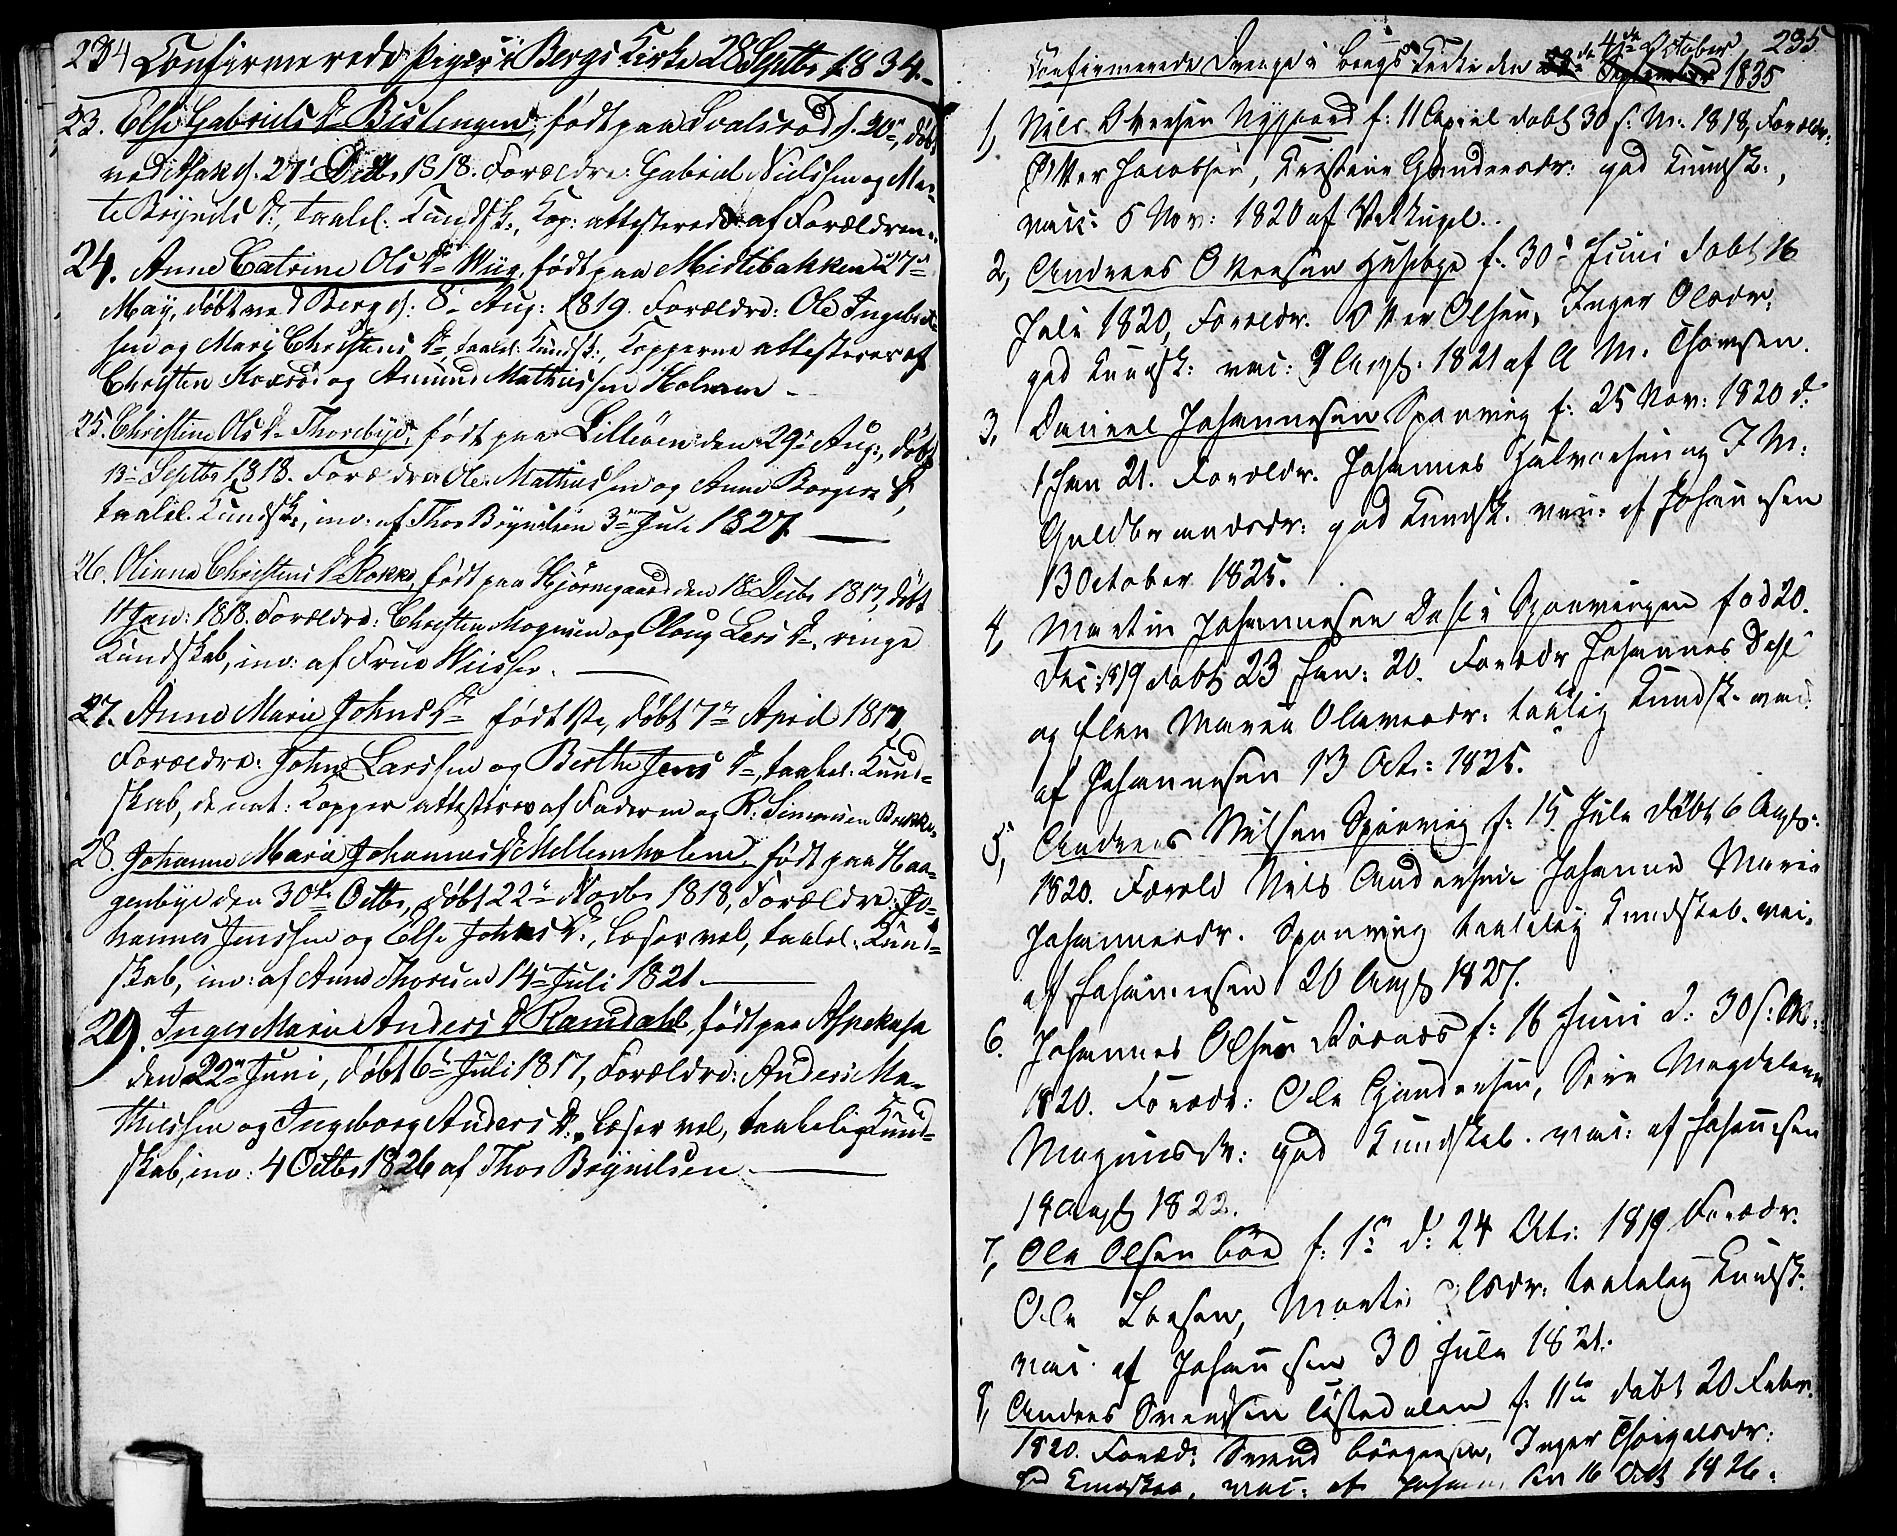 234 Confirmerede Piger i Bergs Kirke 28 Septbr 1834.
23. Else Gabriels D. Bislingen, født paa Svalerød d. 20de, døbt
ved Asak d. 27de Decbr 1818. Forældre: Gabriel Nielssen og Mar-
te Brynils D:, taalel. Kundsk., Kop: attesteredes af Forældrene.
24. Anne Catrine Ols Dr Wiig, født paa Mistebakken 27de
May, døbt ved Berg d: 8de Aug: 1819. Forældre: Ole Ingebret-
sen og Mari Christens Dr, taalel: Kundsk:, Kopperne attesteres af
Christen og Amund Mathissen Holmen
25. Christine Ols Dr Thorsbye, født paa Lilleöen den 29de Aug:, døbt
13de Septbr 1818. Forældre Ole Mathiessen og Anne Borgers D,
taalel. Kundsk:, inv: af Thos Brynilsen 3de Juli 1827.
26. Oliana Christens Dr Rokke, født paa Hjørnegaard den 18de Decbr 1817, døbt
11 Jan: 1818. Forældre: Christen Mogensen og Oloug Lars Dr, ringe
Kundskab, inv: af Frue Weisser.
27. Anne Marie Johns Dr født 1ste, døbt 7de April 1817,
Forældre: John Larssen og Berthe Jens Dr, taalel. Kund-
skab, de nat: Kopper attesteres af Faderen og R. Simensen Bakke
28. Johanne Maria Johannes Dr Mellemholen, født paa Haa-
genbye den 30te Octbr, døbt 22de Novbr 1818, Forældre: Jo-
hannes Jenssen og Else Johns D., læser vel, taalel. Kund-
skab, inv: af Anne Thorsen 14de Juli 1821.
29. Inger Maria Anders D Ramdahl, født paa Aspekasa
den 22de Juni, døbt 6de Juli 1817, Forældre: Anders Ma-
thiessen og Ingeborg Anders D:, læser vel, taalelig Kund-
skab, inv: 4 Octbr 1826 af Thos Brynilsen.
235
Confirmerede Drenge i Bergs Kirke den 4de October 1835
1, Nils Ottersen Nygaard f: 11 April døbt 30 s: M: 1818, Foreldr.
Otter Jacobsen, Kirstine Gundersdr: god Kundsk.,
vac: 5 Nov: 1820 af Vekkugel.
2, Andreas Ottersen Husebye f: 30te Juni døbt 16
Juli 1820, Foreldr. Otter Olsen, Inger Olsdr.
god Kundsk: vac: 9 Augs: 1821 af A M. Thomsen.
3, Daniel Johannesen Sponvig f: 25 Nov: 1820 d.
1 Jan 21. Foreldr. Johannes Halvorsen og I M:
Guldbrandsdr: god Kundsk. vac: af Johannesen
13 October 1825.
4, Martin Johannesen Dahl i Sponvigen fød 20.
Dec: 1819 døbt 23 Jan: 20. Forældr Johannes Dahl
og Elen Maria Olavesdr: taalig Kundsk. vac
af Johannesen 13 Oct: 1825.
5, Andreas Nilsen Sponvig f: 15 Jule døbt 6 Augs:
1820. Foreld Nils Andersen Johanne Maria
Johannesdr. Sponvig taalelig Kundskab. vac.
af Johannesen 20 Augs 1827.
6. Johannes Olsen f: 16 Juni d: 30 s: M:
1820. Forædr: Ole Gundersen, Sire Magdalena
Magnusdr: god Kundskab. vac: af Johannesen
14 Augs 1822.
7, Ole Olsen Böe f: 1de d: 24 Oct: 1819 Forædr.
Ole Larsen, Marte Olsdr: taalelig Kundsk:
vac. af Johannesen 30 Jule 1821.
8, Anders Svendsen Listedalen f: 11te døbt 20 Febr.
1820. Foræd: Svend Börgersen, Inger Thorgelsdr:
god Kundskab, vac: af Johannesen 16 Oct 1826.